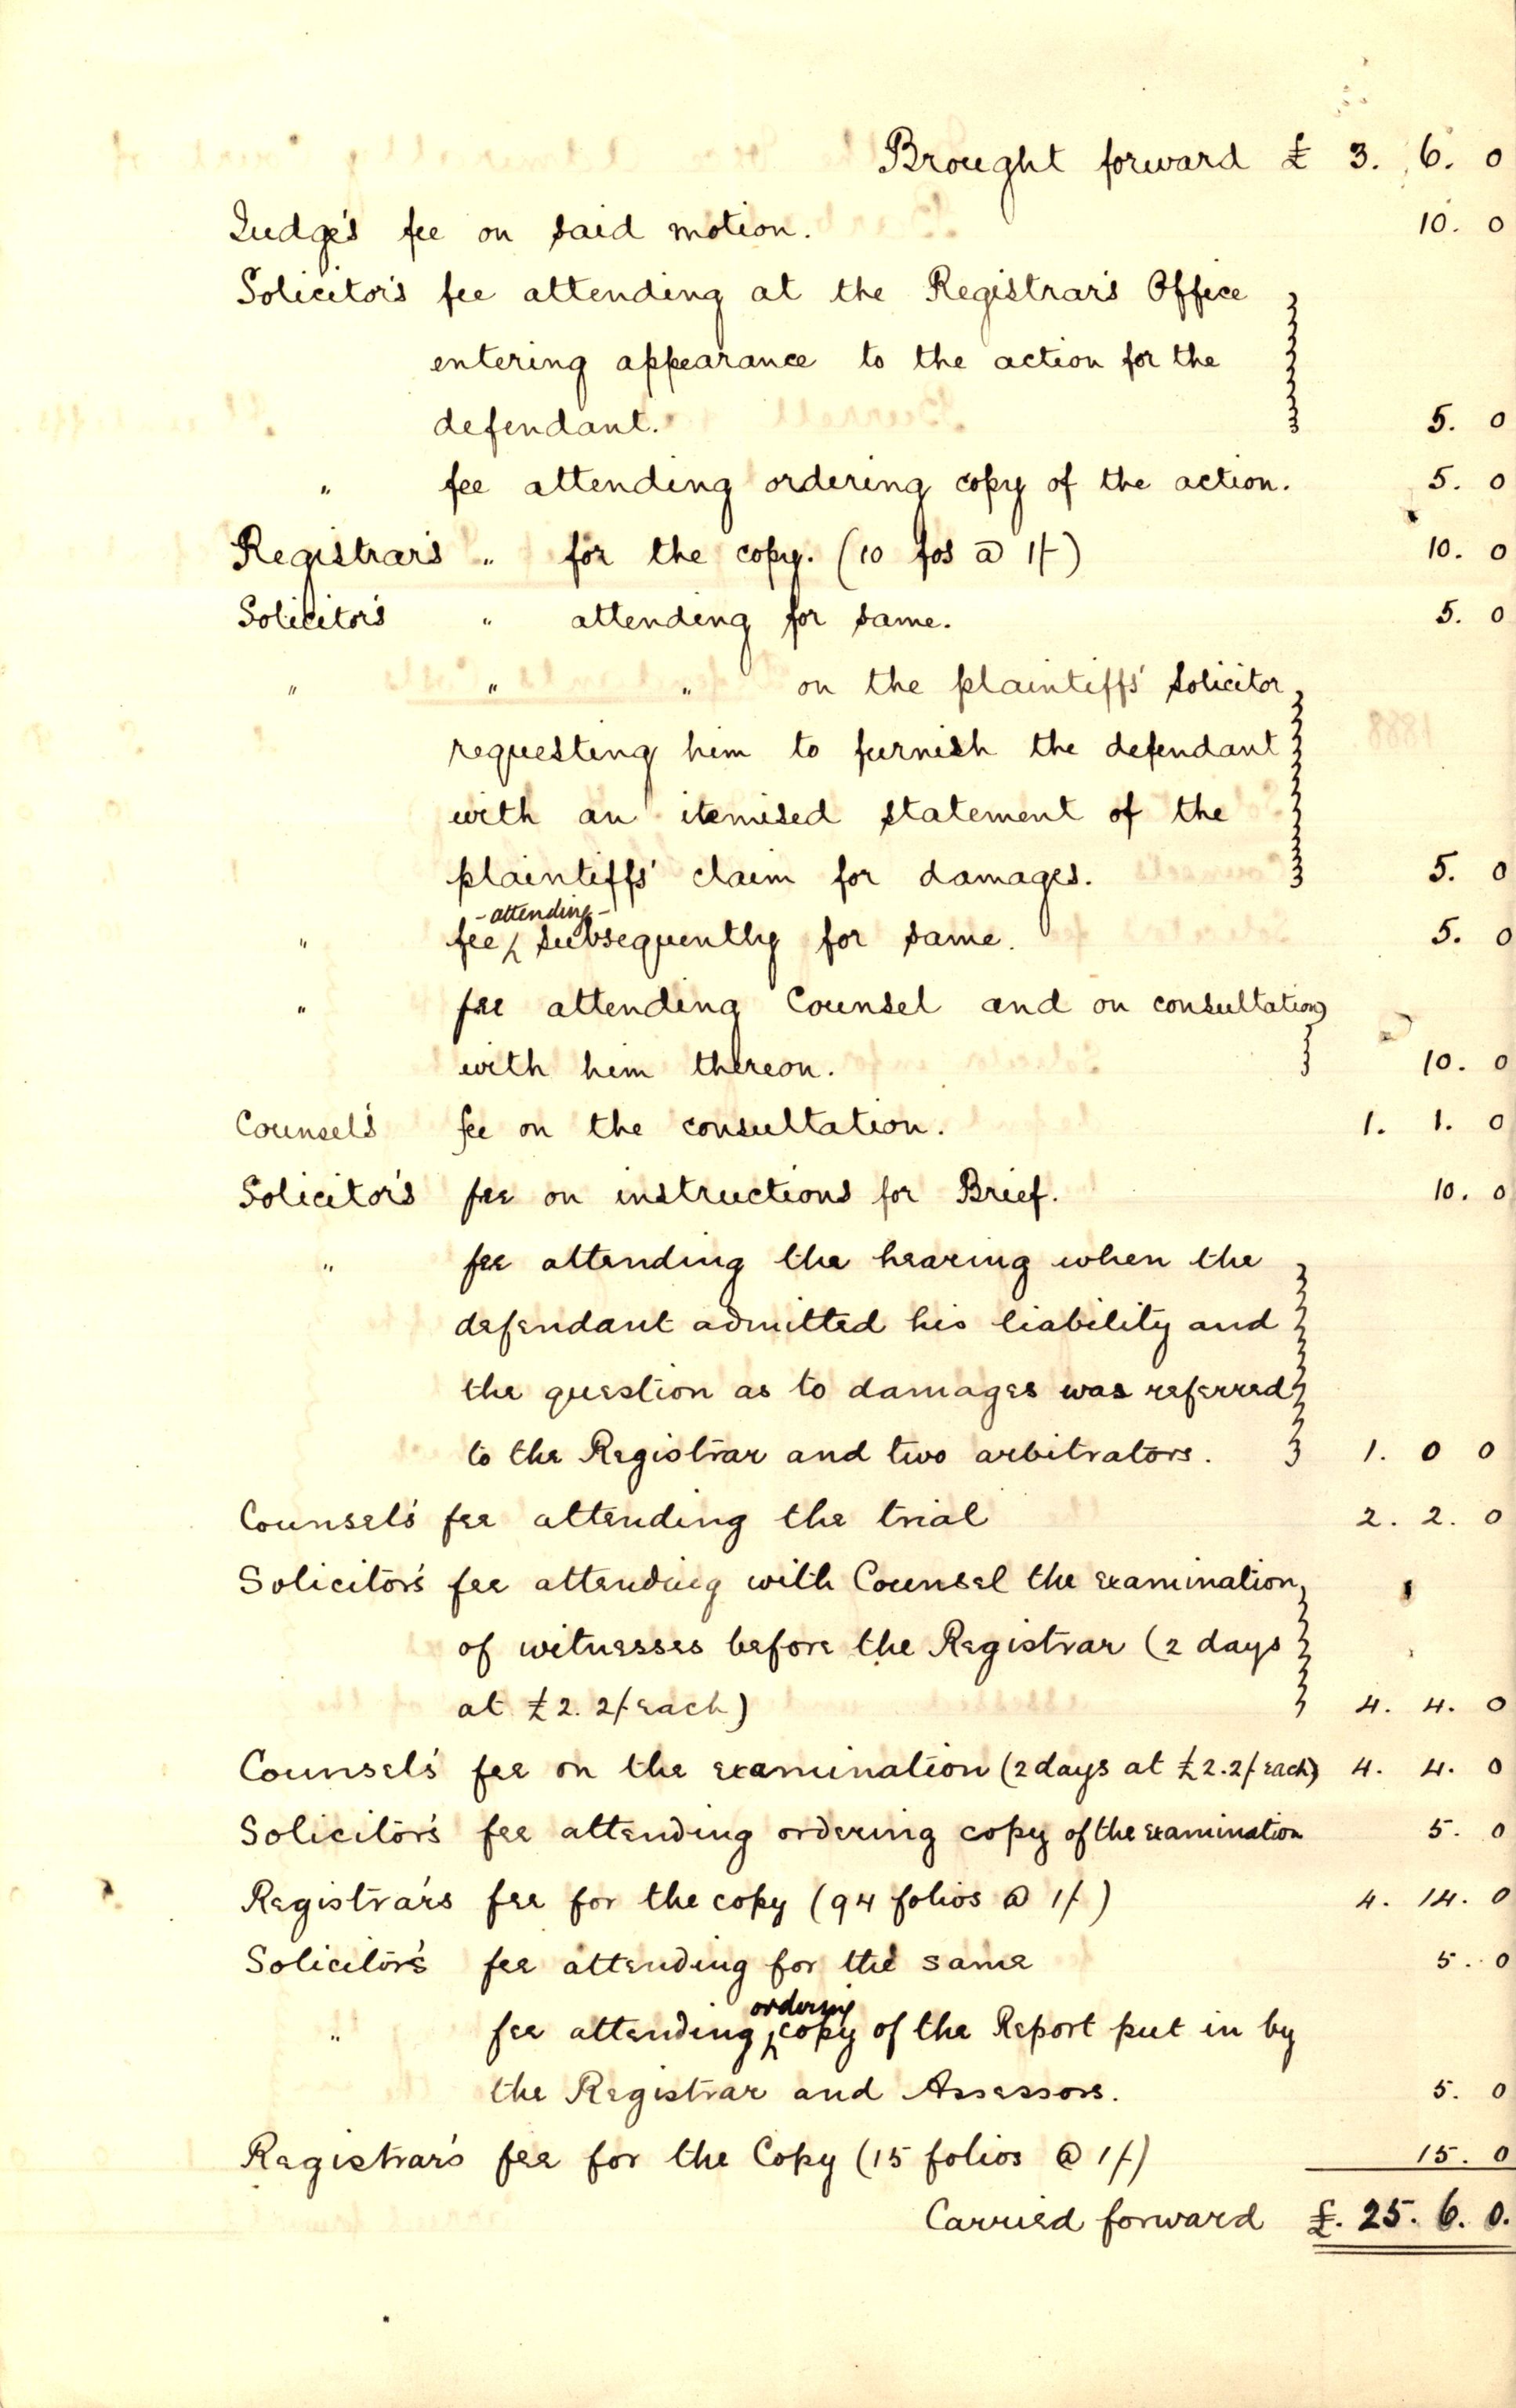 Brought forward £ 3. 6. 0
Judge's fee on said motion. 10. 0
Solicitor's fee attending at the Registrar's Office
entering appearance to the action for the
defendant. 5. 0
" fee attending ordering copy of the action. 5. 0
Registrar's " for the copy. (10 fos @ 1/-) 10. 0
Solicitor's " attending for same. 5. 0
" " " on the plaintiffs' solicitor
requesting him to furnish the defendant
with an itemised statement of the
plaintiffs' claim for damages. 5. 0
- attending -
" fee subsequently for same. 5. 0
" fee attending Counsel and on consultation
with him thereon. 10. 0
Counsel's fee on the consultation. 1. 1. 0
Solicitor's fee on instructions for Brief. 10. 0
" fee attending the hearing when the
defendant admitted his liability and
the question as to damages was referred
to the Registrar and two arbitrators. 1. 0 0
Counsel's fee attending the trial 2. 2. 0
Solicitor's fee attending with Counsel the examination
of witnesses before the Registrar (2 days
at £2. 2/- each) 4. 4. 0
Counsel's fee on the examination (2 days at £2. 2/- each) 4. 4. 0
Solicitor's fee attending ordering copy of the examination 5. 0
Registrar's fee for the copy (94 folios @ 1/-) 4. 14. 0
Solicitor's fee attending for the same 5. 0
ordering
" fee attending copy of the Report put in by
the Registrar and Assessors. 5. 0
Registrar's fee for the Copy (15 folios @ 1/-) 15. 0
Carried forward £. 25. 6. 0.